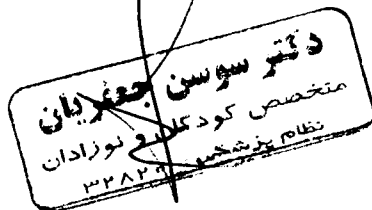 دکتر سوسن جعفریان
متخصص کودکان و نوزادان
نظام پزشکی